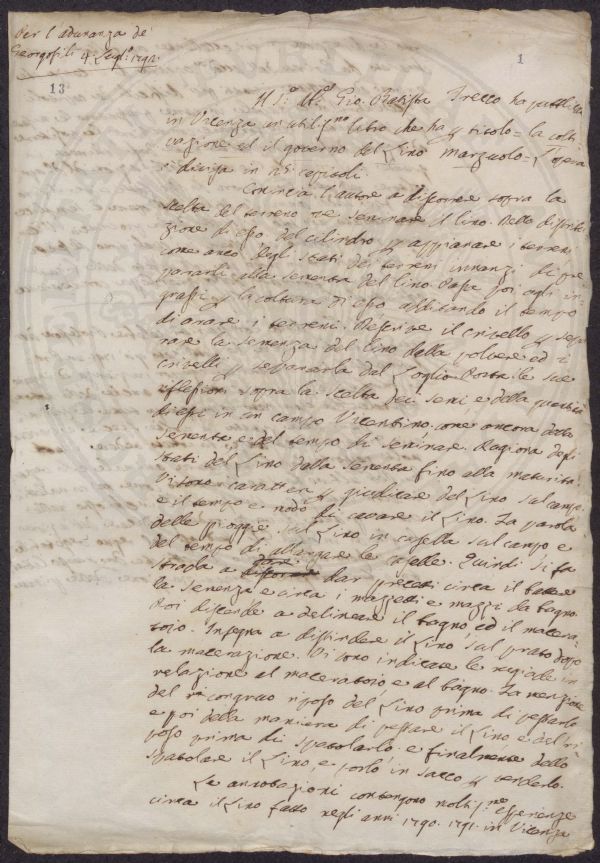 Per l'adunanza de'
Georgofili 4. Lugl. 1792.
1
13
Il S.r Gio. Batista Trecco ha pubblicato
in Vicenza un utiliss.mo libro che ha p titolo = la colti
vazione ed il governo del Lino marzuolo = L'opera
è divisa in capitoli.
Comincia l'autore a discorrere sopra la
scelta del terreno p seminare il lino. Della descri
zione di esso del cilindro p appianare i terreni
come anco degli stati dei terreni innanzi di pre
pararli alla sementa del lino. Passa poi agli in
grassi p la coltura di esso additando il tempo
di arare i terreni. Descrive il crivello p sepa
rare la semenza del lino dalla polvere ed i
crivelli p separarla dal Loglio. Porta le sue
riflessioni sopra la scelta dei semi e della quantità
di essi in un campo Vicentino, come ancora della
sementa e del tempo di seminare. Ragiona degli
stati del Lino dalla sementa fino alla maturità.
Vi sono caratteri p giudicare del Lino sul campo,
e il tempo e modo di cavare il Lino. Fa parola
delle piogge sul Lino in casella sul campo e
del tempo di allargare le caselle. Quindi si fa
strada a dare dar precetti circa il battere
la semenza e circa i mazzetti e mazzi da bagno.
Poi discende a delineare il bagno ed il macera
toio. Insegna a distendere il Lino sul prato dopo
la macerazione. Vi sono indicate le regole in
relazione al maceratoio e al bagno. Fa menzione
del congruo riposo del Lino prima di pestarlo
e poi della maniera di pestare il Lino e del ri
poso prima di spatolarlo e finalmente dello
spatolare il Lino e porlo in sacco p venderlo.
Le annotazioni contengono molti.me esperienze
circa il Lino fatto negli anni 1790. 1791. in Vicenza